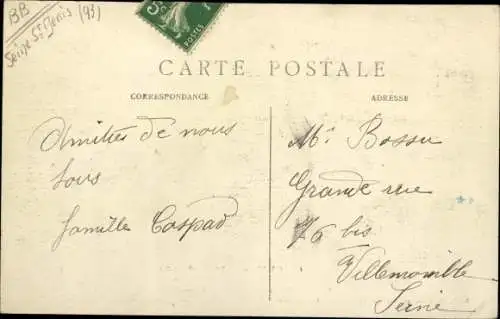 BB
Seine St Denis (93)
5c
CARTE POSTALE
CORRESPONDANCE
ADRESSE
Amitiés de nous
tous
famille Caspad
Mr Bossu
Grande rue
76 bis
Villemomble
Seine